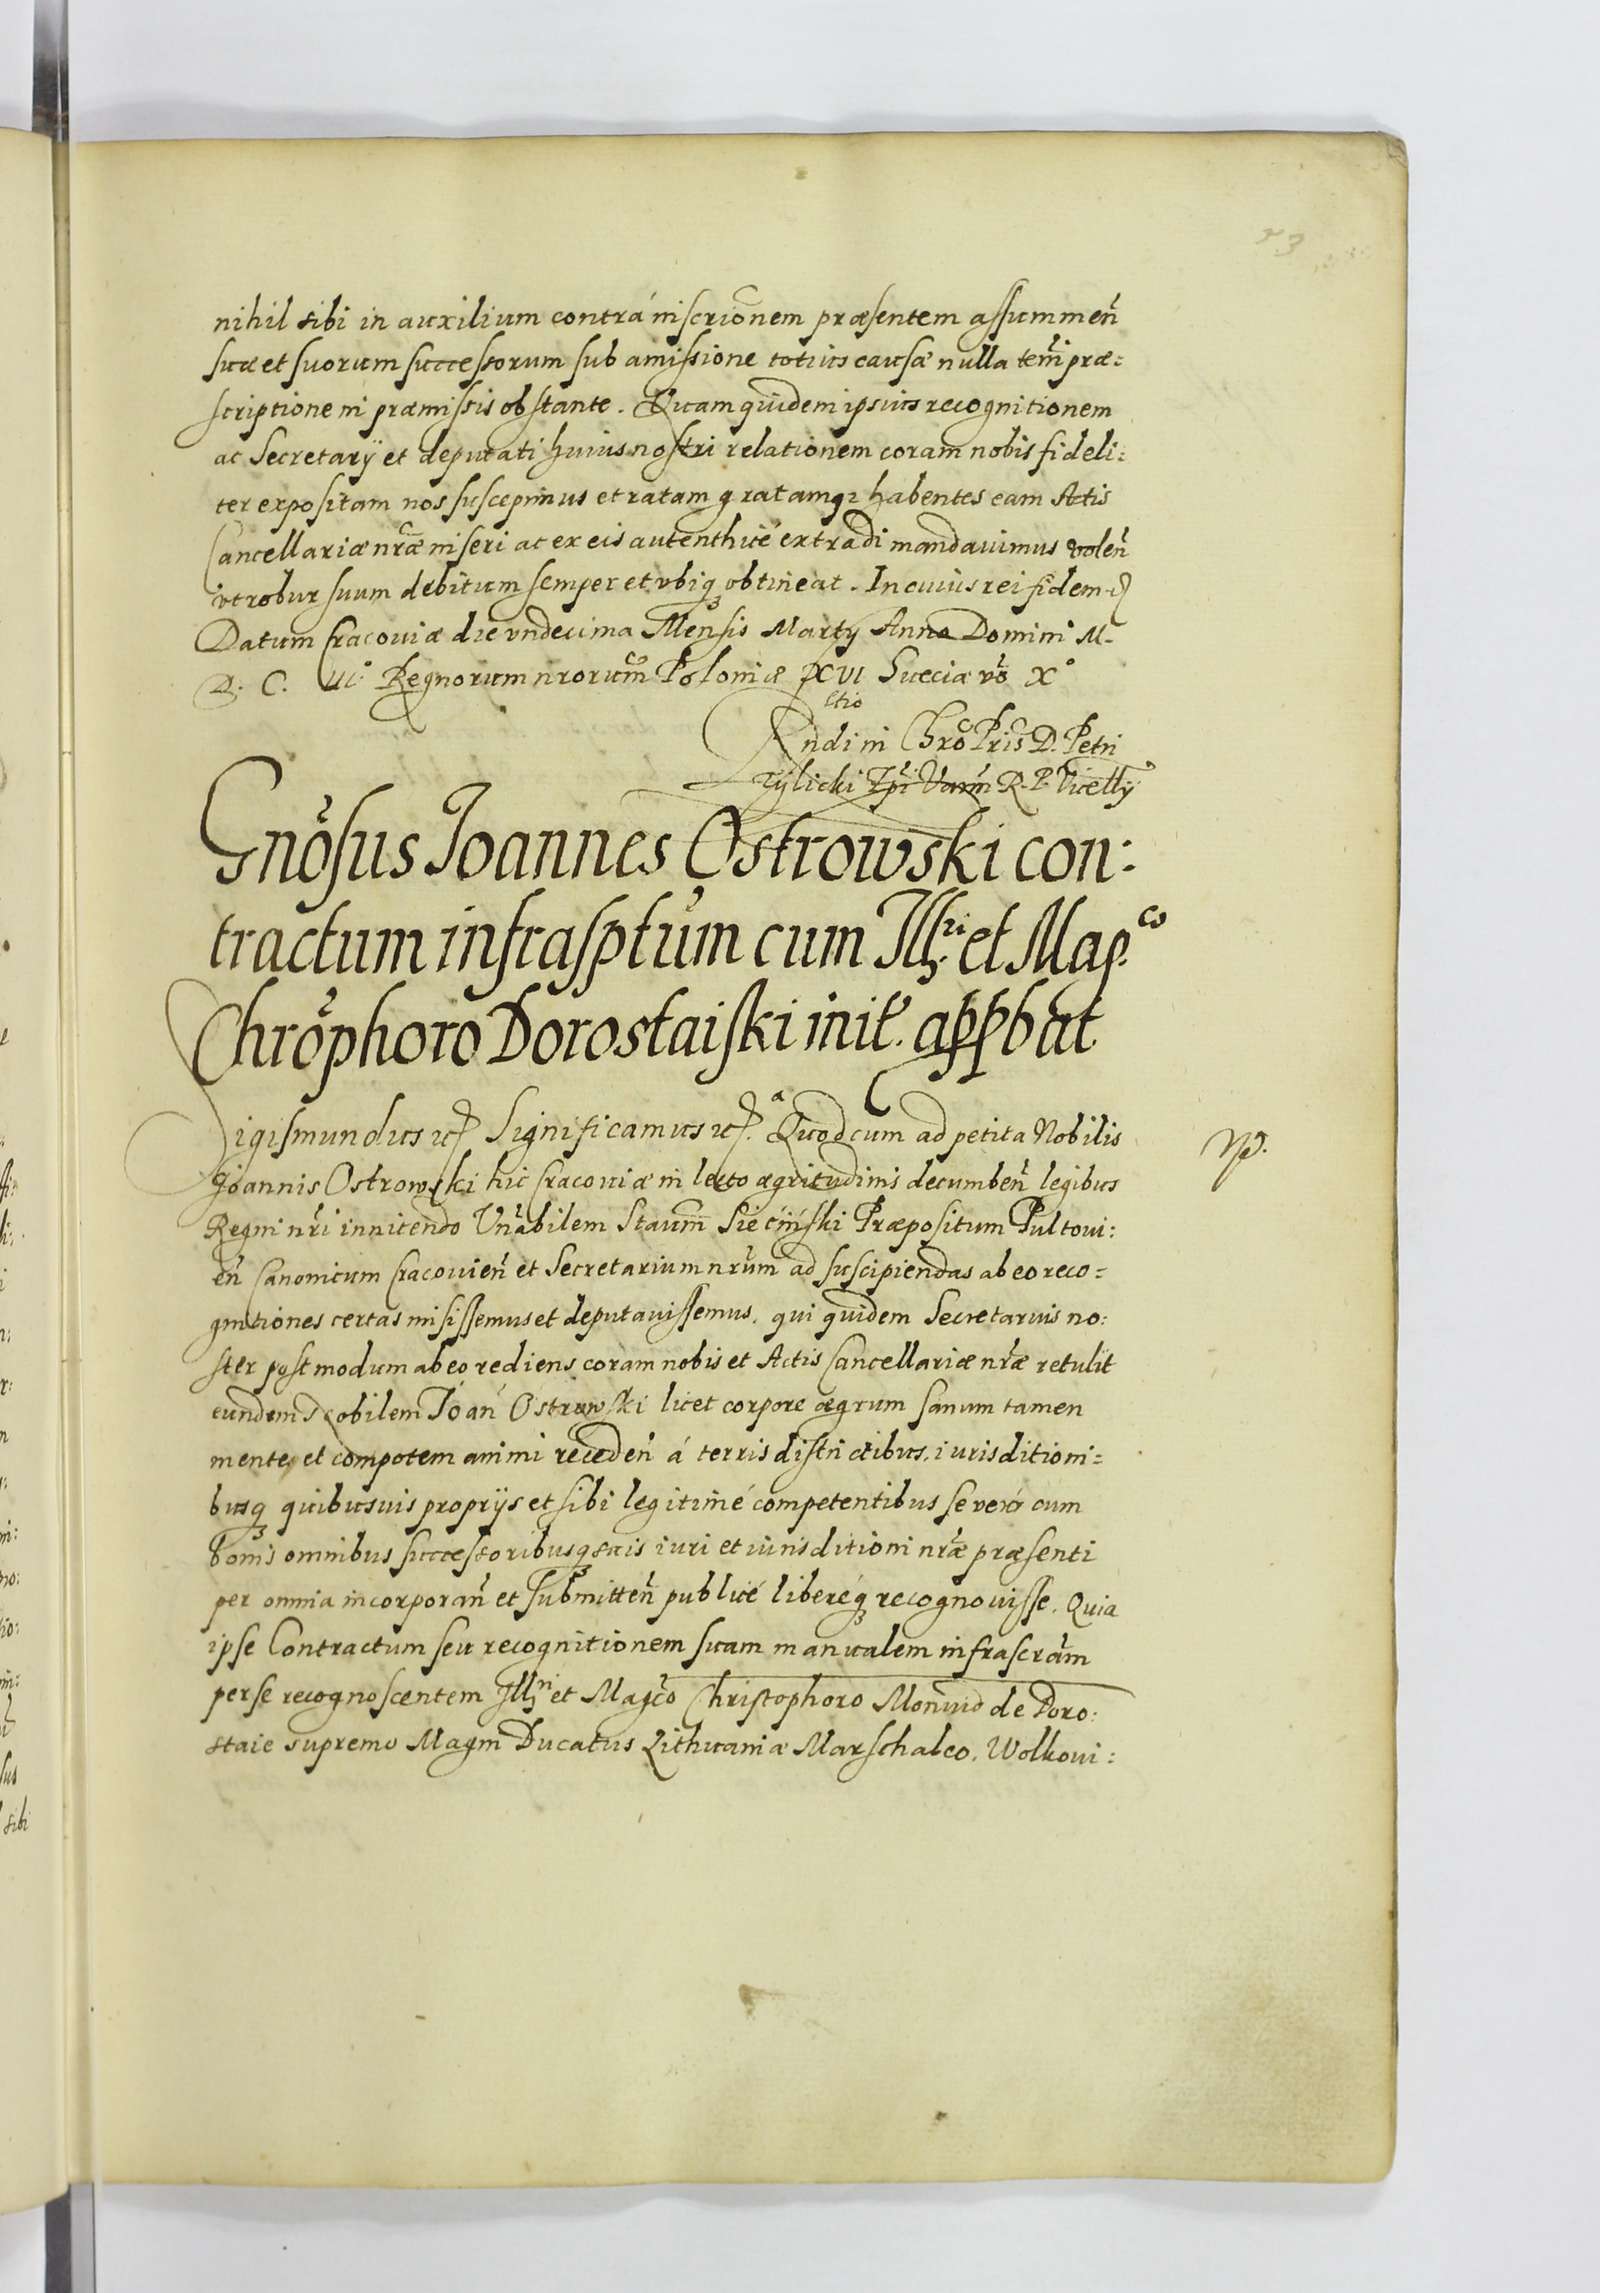 73
nihil sibi in auxilium contrá inscrionem præsentem assummen̄
suæ et suorum successorum sub amissione totius causæ nulla tem̄i præ=
scriptione in præmissis obstante. Quam quidem ipsius recognitionem
ac Secretarÿ et deputati huius nostri relationem coram nobis fideli:
ter expositam nos suscepimus et ratam gratamqꝫ habentes eam Actis
Cancellariæ nr̄æ inseri ac ex eis autenthicé extradi mandauimus volen̄
vt robur suum debitum semper et vbiqꝫ obtineat. In cuius rei fidem
Datum Cracouiæ die vndecima Mensis Martÿ Anno Domini M.
D. C. III° Regnorum nrorum̄ Poloniæ XVI Sueciæ vō X°
ctio
Rndi in Chrō Pris D. Petri
Tylicki R. P. Vicecllÿ
Gnōsus Joannes Ostrowski con:
tractum infrasptūm cum Illri et Mag.co
Chrōphoro Dorostaiski init. appbat
Sigismundus Significamus a Quod cum ad petita Nobilis
Joannis Ostrowski hic Cracouiæ in lecto ægritudinis decumben̄ legibus
Regni nr̄i innitendo Vnābilem Staum̄ Sieciński Præpositum Pultoui:
en̄ Canonicum Cracouien̄ et Secretarium nrūm ad suscipiendas ab eo reco=
gnitiones certas misissemus et deputauissemus, qui quidem Secretarius no:
ster postmodum ab eo rediens coram nobis et Actis Cancellariæ nr̄æ retulit
eundem Nobilem Joan̄ Ostrowski licet corpore ægrum sanum tamen
mente, et compotem animi receden̄ á terris districtibus, iurisditioni=
busqꝫ quibusuis proprÿs et sibi legitimé competentibus se veró cum
bonis omnibus successoribusqꝫ suis iuri et iurisditioni nr̄æ præsenti
per omnia incorporan̄ et submitten̄ publicé liberéqꝫ recognouisse. Quia
ipse Contractum seu recognitionem suam manualem infrascrām
per se recognoscentem Illri et Magcō Christophoro Monuid de Doro:
staie supremo Magni Ducatus Lithuaniæ Marschalco, Wolkoui: